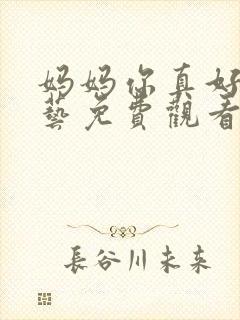 妈妈你真好
藝免费觀看
長谷川未来